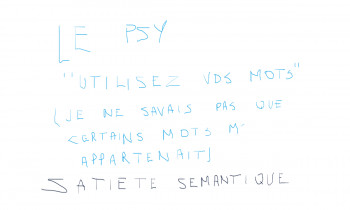 LE PSY
"UTILISEZ VOS MOTS"
(JE NE SAVAIS PAS QUE
CERTAINS MOTS M'
APPARTENAIT)
SATIETE SEMANTIQUE